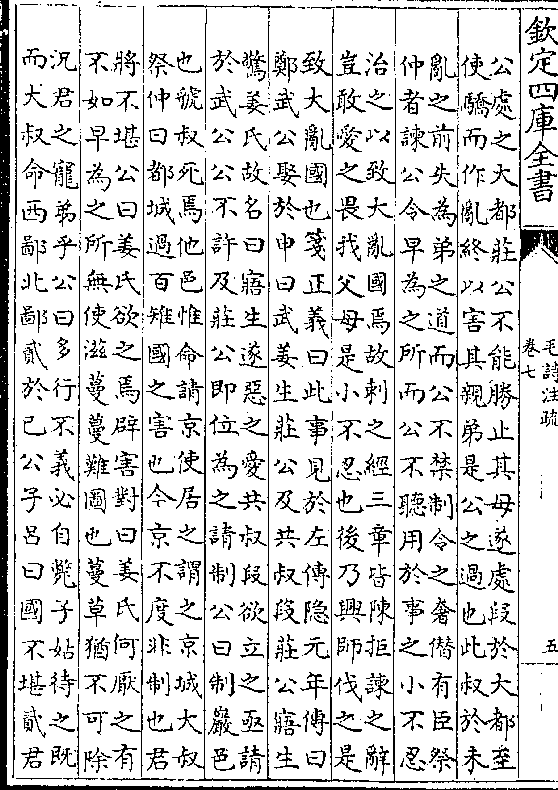 欽定四庫全書
毛詩注疏
卷七
五
公處之大都莊公不能勝止其母遂處段於大都至
使驕而作亂終以害其親弟是公之過也此叔於未
亂之前失為弟之道而公不禁制令之奢僭有臣祭
仲者諫公令早為之所而公不聽用於事之小不忍
治之以致大亂國焉故刺之經三章皆陳拒諫之辭
豈敢愛之畏我父母是小不忍也後乃興師伐之是
致大亂國也箋正義曰此事見於左傳隐元年傳曰
鄭武公娶於申曰武姜生莊公及共叔段莊公寤生
驚姜氏故名曰寤生遂惡之愛共叔段欲立之亟請
於武公公不許及莊公即位為之請制公曰制巖邑
也虢叔死焉他邑惟命請京使居之謂之京城大叔
祭仲曰都城過百雉國之害也今京不度非制也君
將不堪公曰姜氏欲之焉辟害對曰姜氏何厭之有
不如早為之所無使滋蔓蔓難圖也蔓草猶不可除
況君之寵弟乎公曰多行不義必自斃子姑待之既
而大叔命西鄙北鄙貳於已公子呂曰國不堪貳君